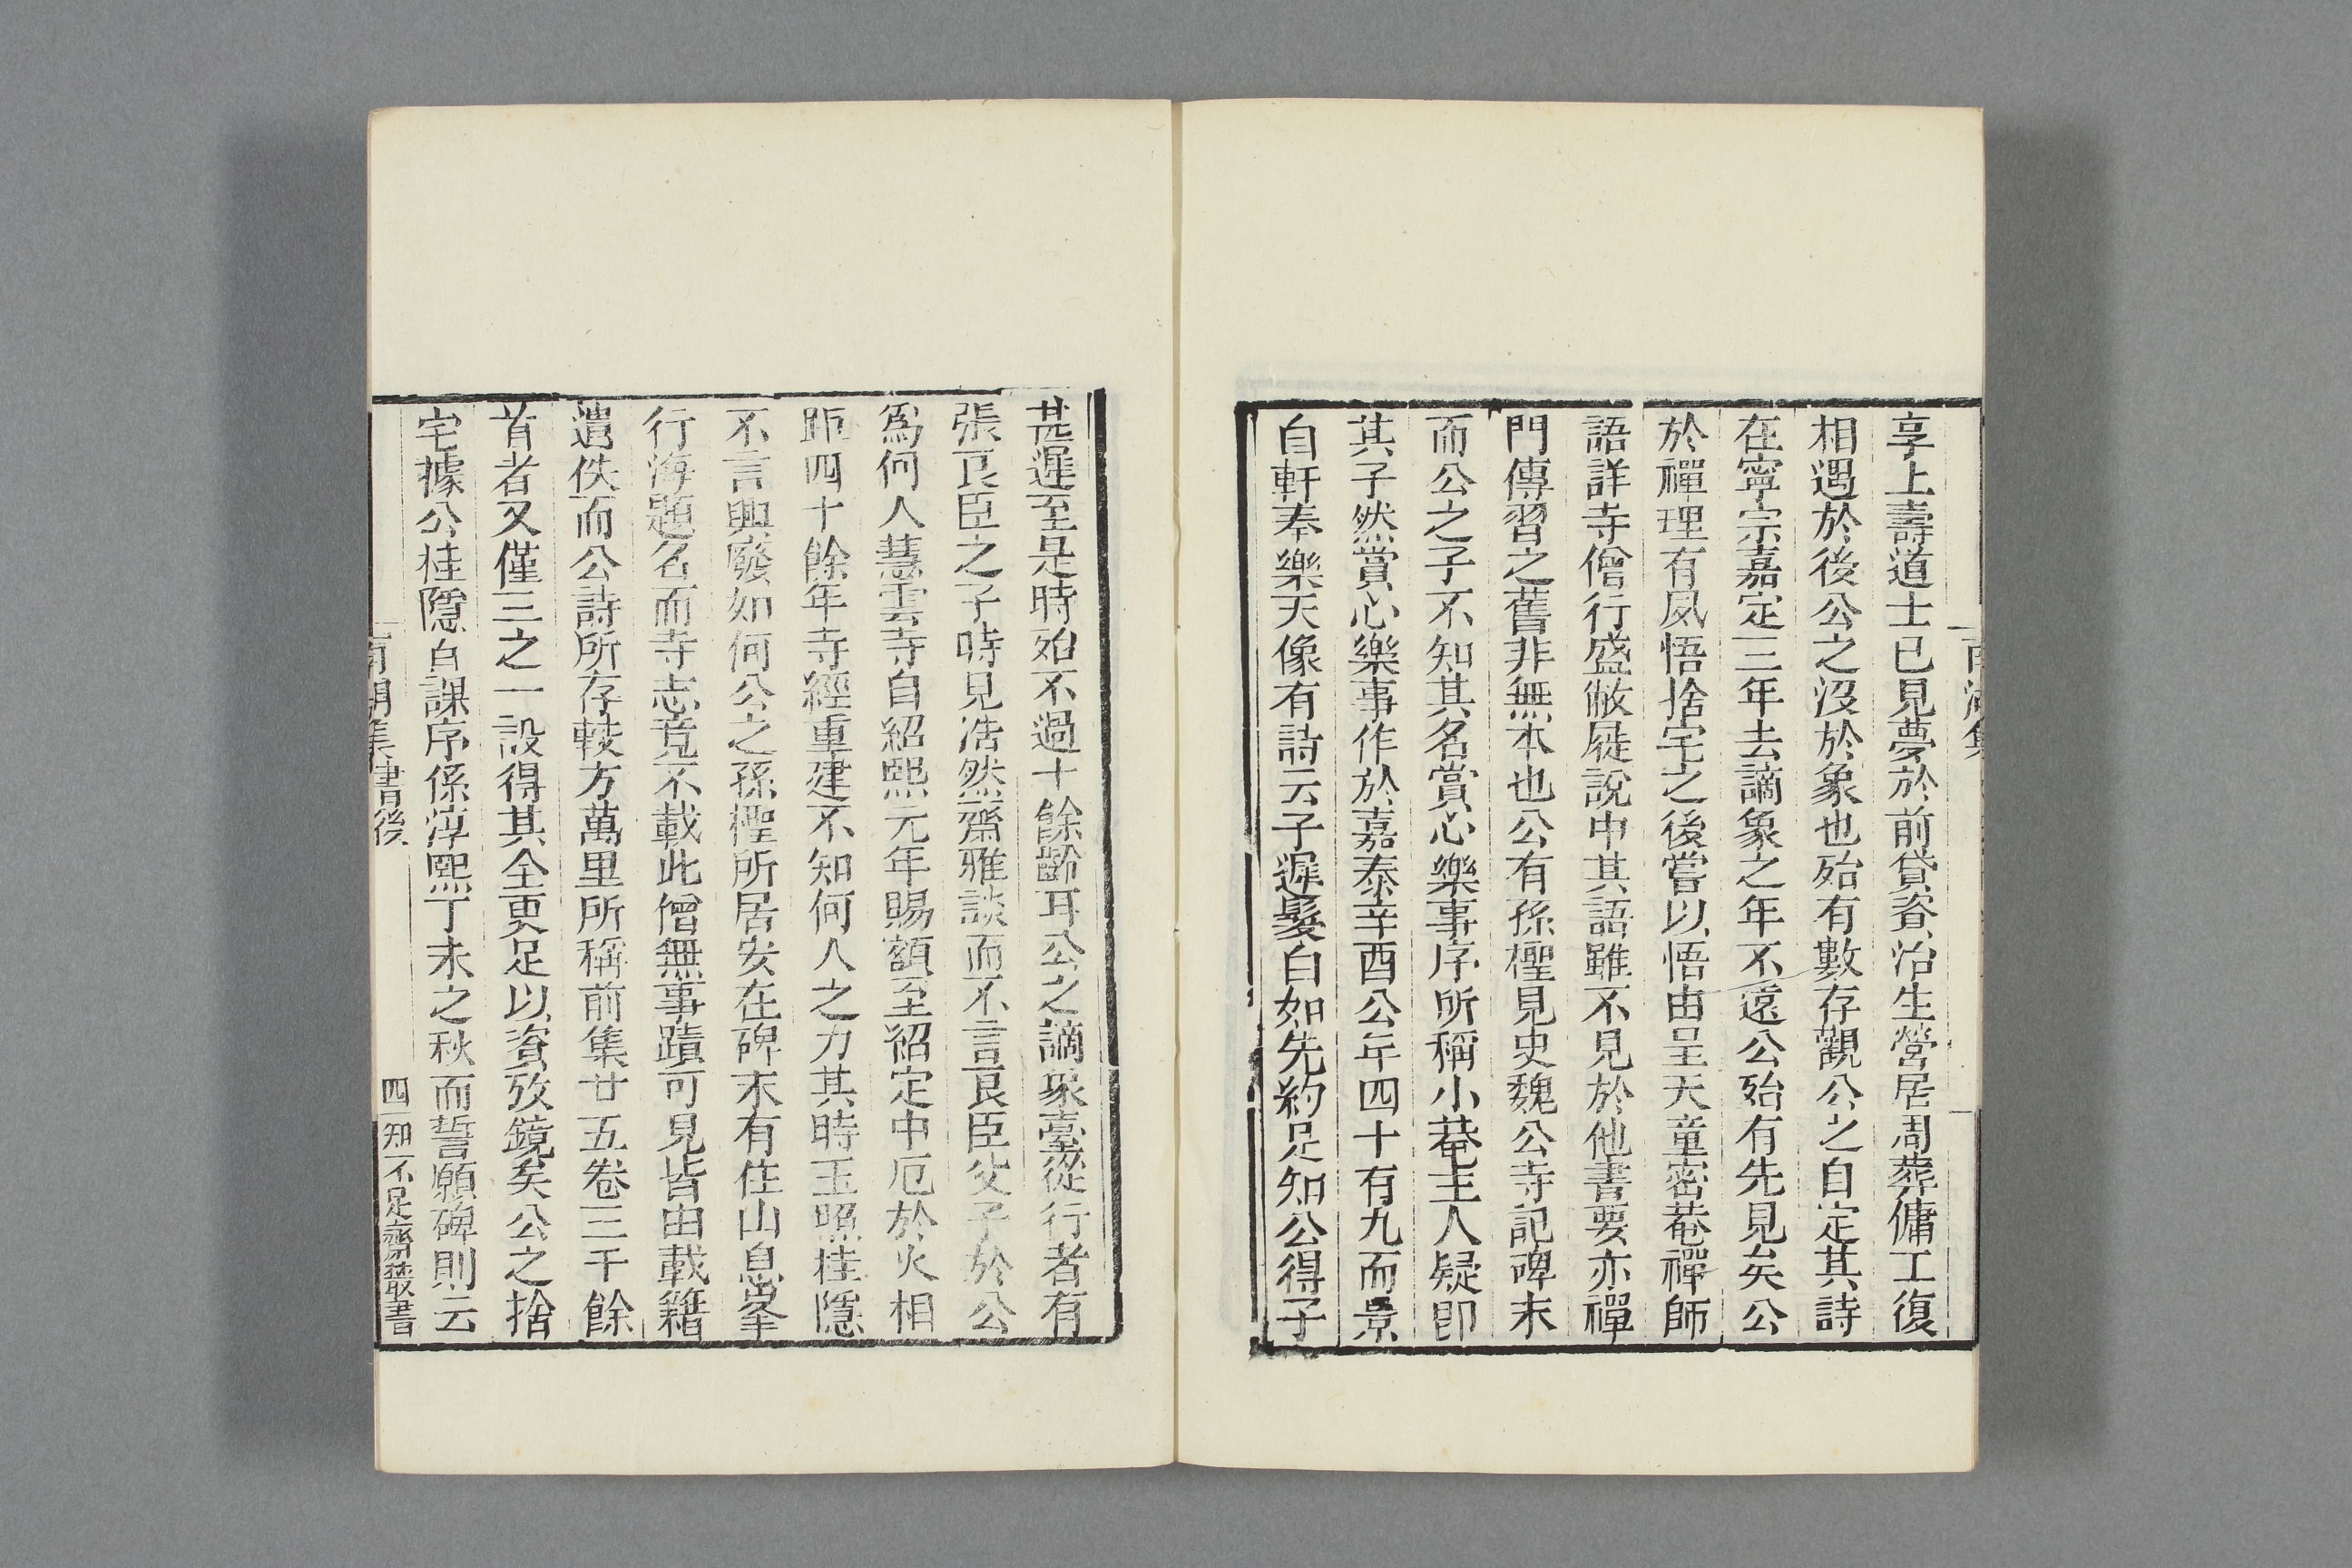 享上壽道士已見夢於前貸資治生營居周葬傭工復
相遇於後公之沒於象也殆有數存觀公之自定其詩
在寧宗嘉定三年去謫象之年不遠公殆有先見矣公
於禪理有夙悟捨宅之後嘗以悟由呈天童密菴禪師
語詳寺僧行盛敝屣說中其語雖不見於他書要亦禪
門傳習之舊非無本也公有孫檉見史魏公寺記碑末
而公之子不知其名賞心樂事序所稱小菴主人疑卽
其子然賞心樂事作於嘉泰辛酉公年四十有九而景
白軒奉樂天像有詩云子遲髮白如先約足知公得子
甚遲至是時殆不過十餘齡耳公之謫象臺從行者有
張艮臣之子時見浩然齋雅談而不言艮臣父子於公
爲何人慧雲寺自紹熙元年賜額至紹定中厄於火相
距四十餘年寺經重建不知何人之力其時玉照桂隱
不言興廢如何公之孫檉所居安在碑末有住山息峯
行海題名而寺志竟不載此僧無事蹟可見皆由載籍
遺佚而公詩所存較方萬里所稱前集廿五卷三千餘
首者又僅三之一設得其全更足以資攷鏡矣公之捨
宅據公桂隱白課序係淳熙丁未之秋而誓願碑則云
南湖集書後
四 知不足齋叢書